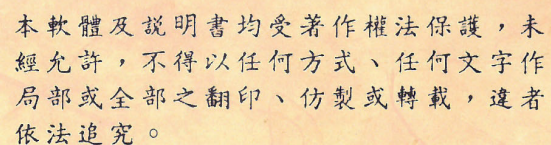 本軟體及說明書均受著作權法保護，未
經允許，不得以任何方式、任何文字作
局部或全部之翻印、仿製或轉載，違者
依法追究。